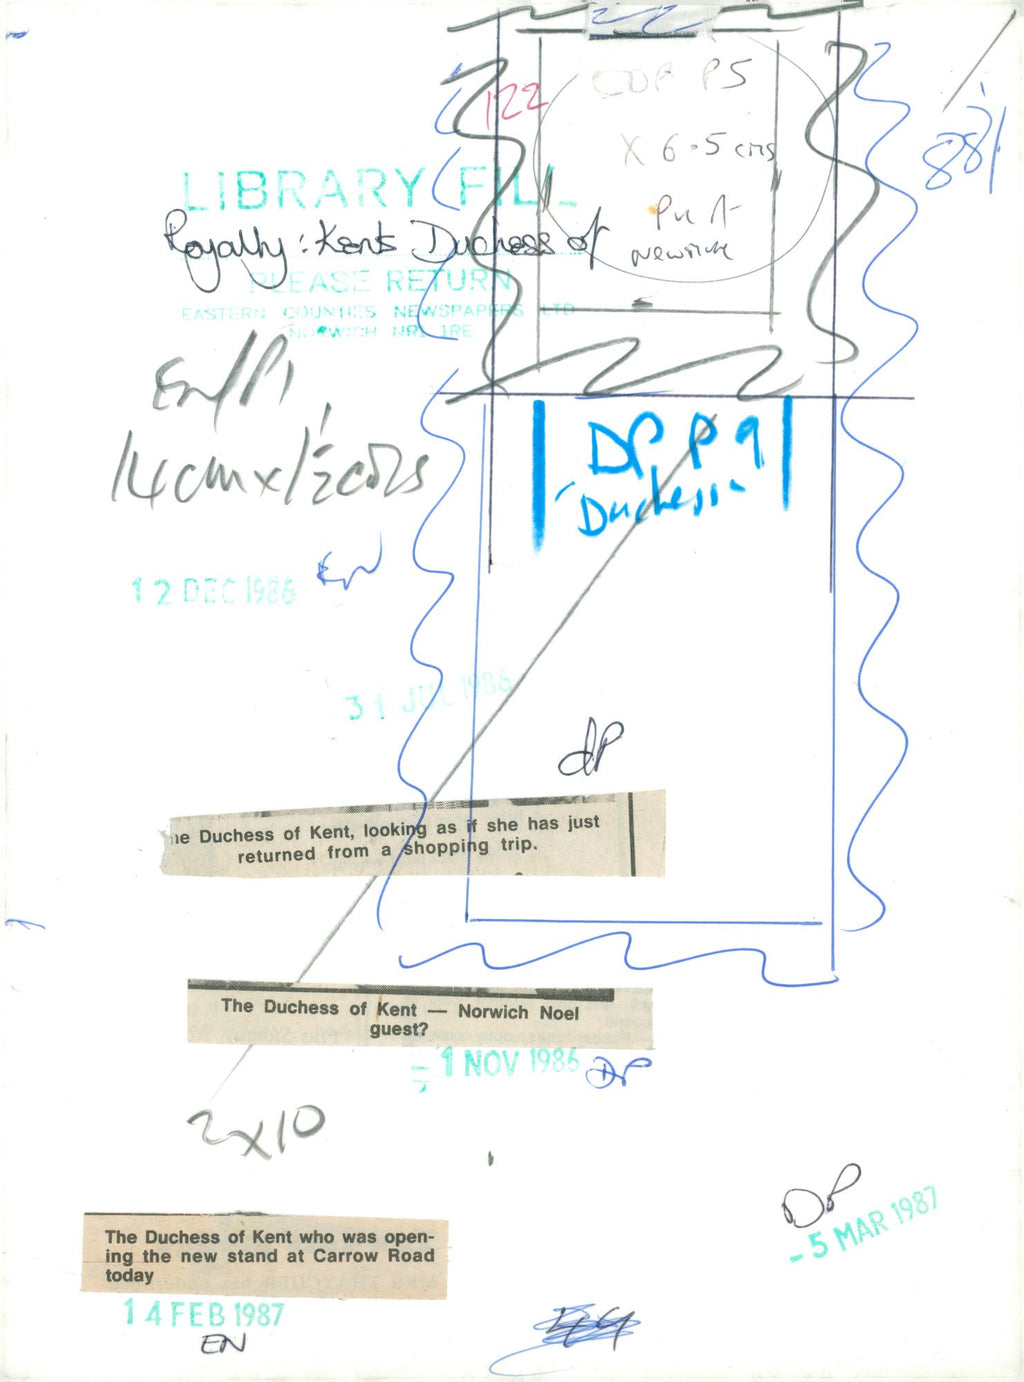 122
EDP P5
X 6.5 cms
881
LIBRARY FILE
Royalty: Kent Duchess of
PLEASE RETURN
EASTERN COUNTIES NEWSPAPERS LTD
NORWICH NR1 1RE
EN/P1
14cm x 1½ cols
DP P9
"Duchess"
12 DEC 1986
EN
31 JUL 1986
DP
he Duchess of Kent, looking as if she has just
returned from a shopping trip.
The Duchess of Kent — Norwich Noel
guest?
1 NOV 1986
DP
2x10
DP
- 5 MAR 1987
The Duchess of Kent who was open-
ing the new stand at Carrow Road
today
14 FEB 1987
EN